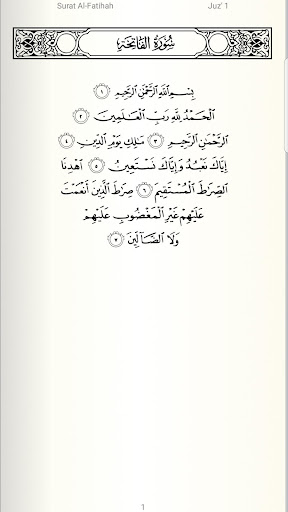 Surat Al-Fatihah Juz' 1
سُورَةُ الفَاتِحَةِ
بِسْمِ ٱللَّهِ ٱلرَّحْمَٰنِ ٱلرَّحِيمِ ١
ٱلْحَمْدُ لِلَّهِ رَبِّ ٱلْعَٰلَمِينَ ٢
ٱلرَّحْمَٰنِ ٱلرَّحِيمِ ٣ مَٰلِكِ يَوْمِ ٱلدِّينِ ٤
إِيَّاكَ نَعْبُدُ وَإِيَّاكَ نَسْتَعِينُ ٥ ٱهْدِنَا
ٱلصِّرَٰطَ ٱلْمُسْتَقِيمَ ٦ صِرَٰطَ ٱلَّذِينَ أَنْعَمْتَ
عَلَيْهِمْ غَيْرِ ٱلْمَغْضُوبِ عَلَيْهِمْ
وَلَا ٱلضَّآلِّينَ ٧
1